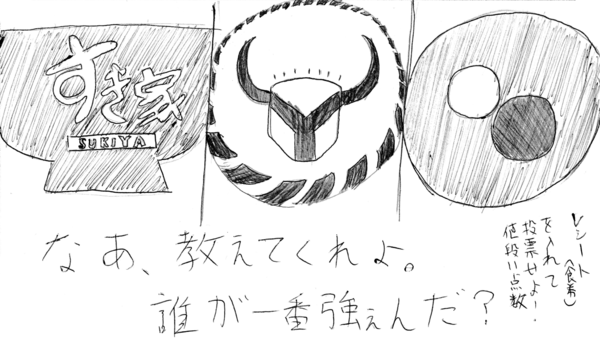 すき家
SUKIYA
なあ、教えてくれよ。
誰が一番強ぇんだ？
レシート
を入れて
投票せよ！
値段い点数